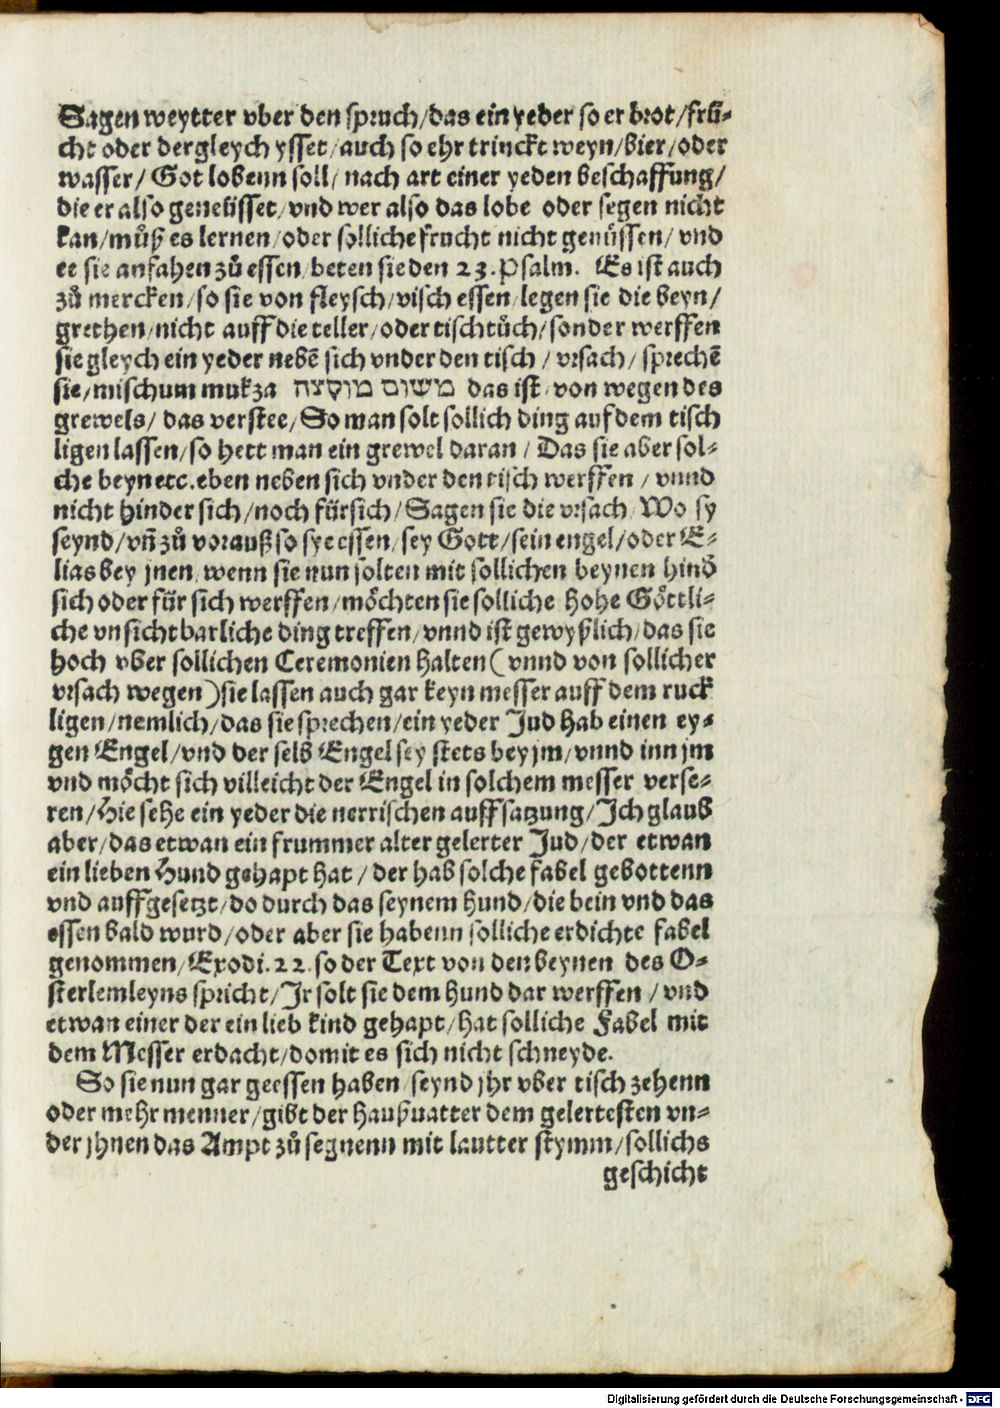 Sagen weytter vber den spruch/das ein yeder so er brot/frü-
cht oder dergleych ysset/auch so ehr trinckt weyn/bier/oder
wasser/ Got lobenn soll/ nach art einer yeden beschaffung/
die er also geneüsset/vnd wer also das lobe oder segen nicht
kan/můß es lernen/oder solliche frucht nicht genüssen/ vnd
ee sie anfahen zů essen/beten sie den 23.Psalm. Es ist auch
zů mercken/so sie von fleysch/visch essen/legen sie die beyn/
grethen/nicht auff die teller/oder tischtůch/sonder werffen
sie gleych ein yeder nebē sich vnder den tisch / vrsach/ sprechē
sie/mischum mukza משום מוקצה das ist/von wegen des
grewels/ das verstee/ So man solt sollich ding auf dem tisch
ligen lassen/so hett man ein grewel daran / Das sie aber sol-
che beyn etc.eben neben sich vnder den tisch werffen / vnnd
nicht hinder sich/noch fürsich/ Sagen sie die vrsach/ Wo sy
seynd/vñ zů vorauß so sye essen/sey Gott/sein engel/oder E-
lias bey jnen/wenn sie nun solten mit sollichen beynen hind
sich oder für sich werffen/möchten sie solliche hohe Göttli-
che vnsichtbarliche ding treffen/vnnd ist gewyßlich/das sie
hoch vber sollichen Ceremonien halten (vnnd von sollicher
vrsach wegen)sie lassen auch gar keyn messer auff dem ruck
ligen/nemlich/das sie sprechen/ein yeder Jud hab einen ey-
gen Engel/vnd der selb Engel sey stets bey jm/vnnd inn jm
vnd möcht sich villeicht der Engel in solchem messer verse-
ren/Hie sehe ein yeder die nerrischen auffsatzung/Jch glaub
aber/das etwan ein frummer alter gelerter Jud/der etwan
ein lieben Hund gehapt hat / der hab solche fabel gebottenn
vnd auffgesetzt/do durch das seynem hund/die bein vnd das
essen bald wurd/oder aber sie habenn solliche erdichte fabel
genommen/Exodi.22.so der Text von den beynen des O-
sterlemleyns spricht/Jr solt sie dem hund dar werffen / vnd
etwan einer der ein lieb kind gehapt/hat solliche Fabel mit
dem Messer erdacht/domit es sich nicht schneyde.
So sie nun gar geessen haben/seynd jhr vber tisch zehenn
oder mehr menner/gibt der haußuatter dem gelertesten vn-
der jhnen das Ampt zů segnenn mit lautter stymm/sollichs
geschicht
Digitalisierung gefördert durch die Deutsche Forschungsgemeinschaft - DFG